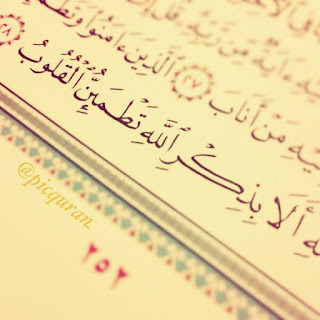 ءَايَةٌ مِّن رَّبِّهِۦ قُلْ إِنَّ
مَنْ أَنَابَ ٢٧ ٱلَّذِينَ ءَامَنُوا۟ وَتَطْمَ
أَلَا بِذِكْرِ ٱللَّهِ تَطْمَئِنُّ ٱلْقُلُوبُ ٢٨
@picquran
٢٥٢